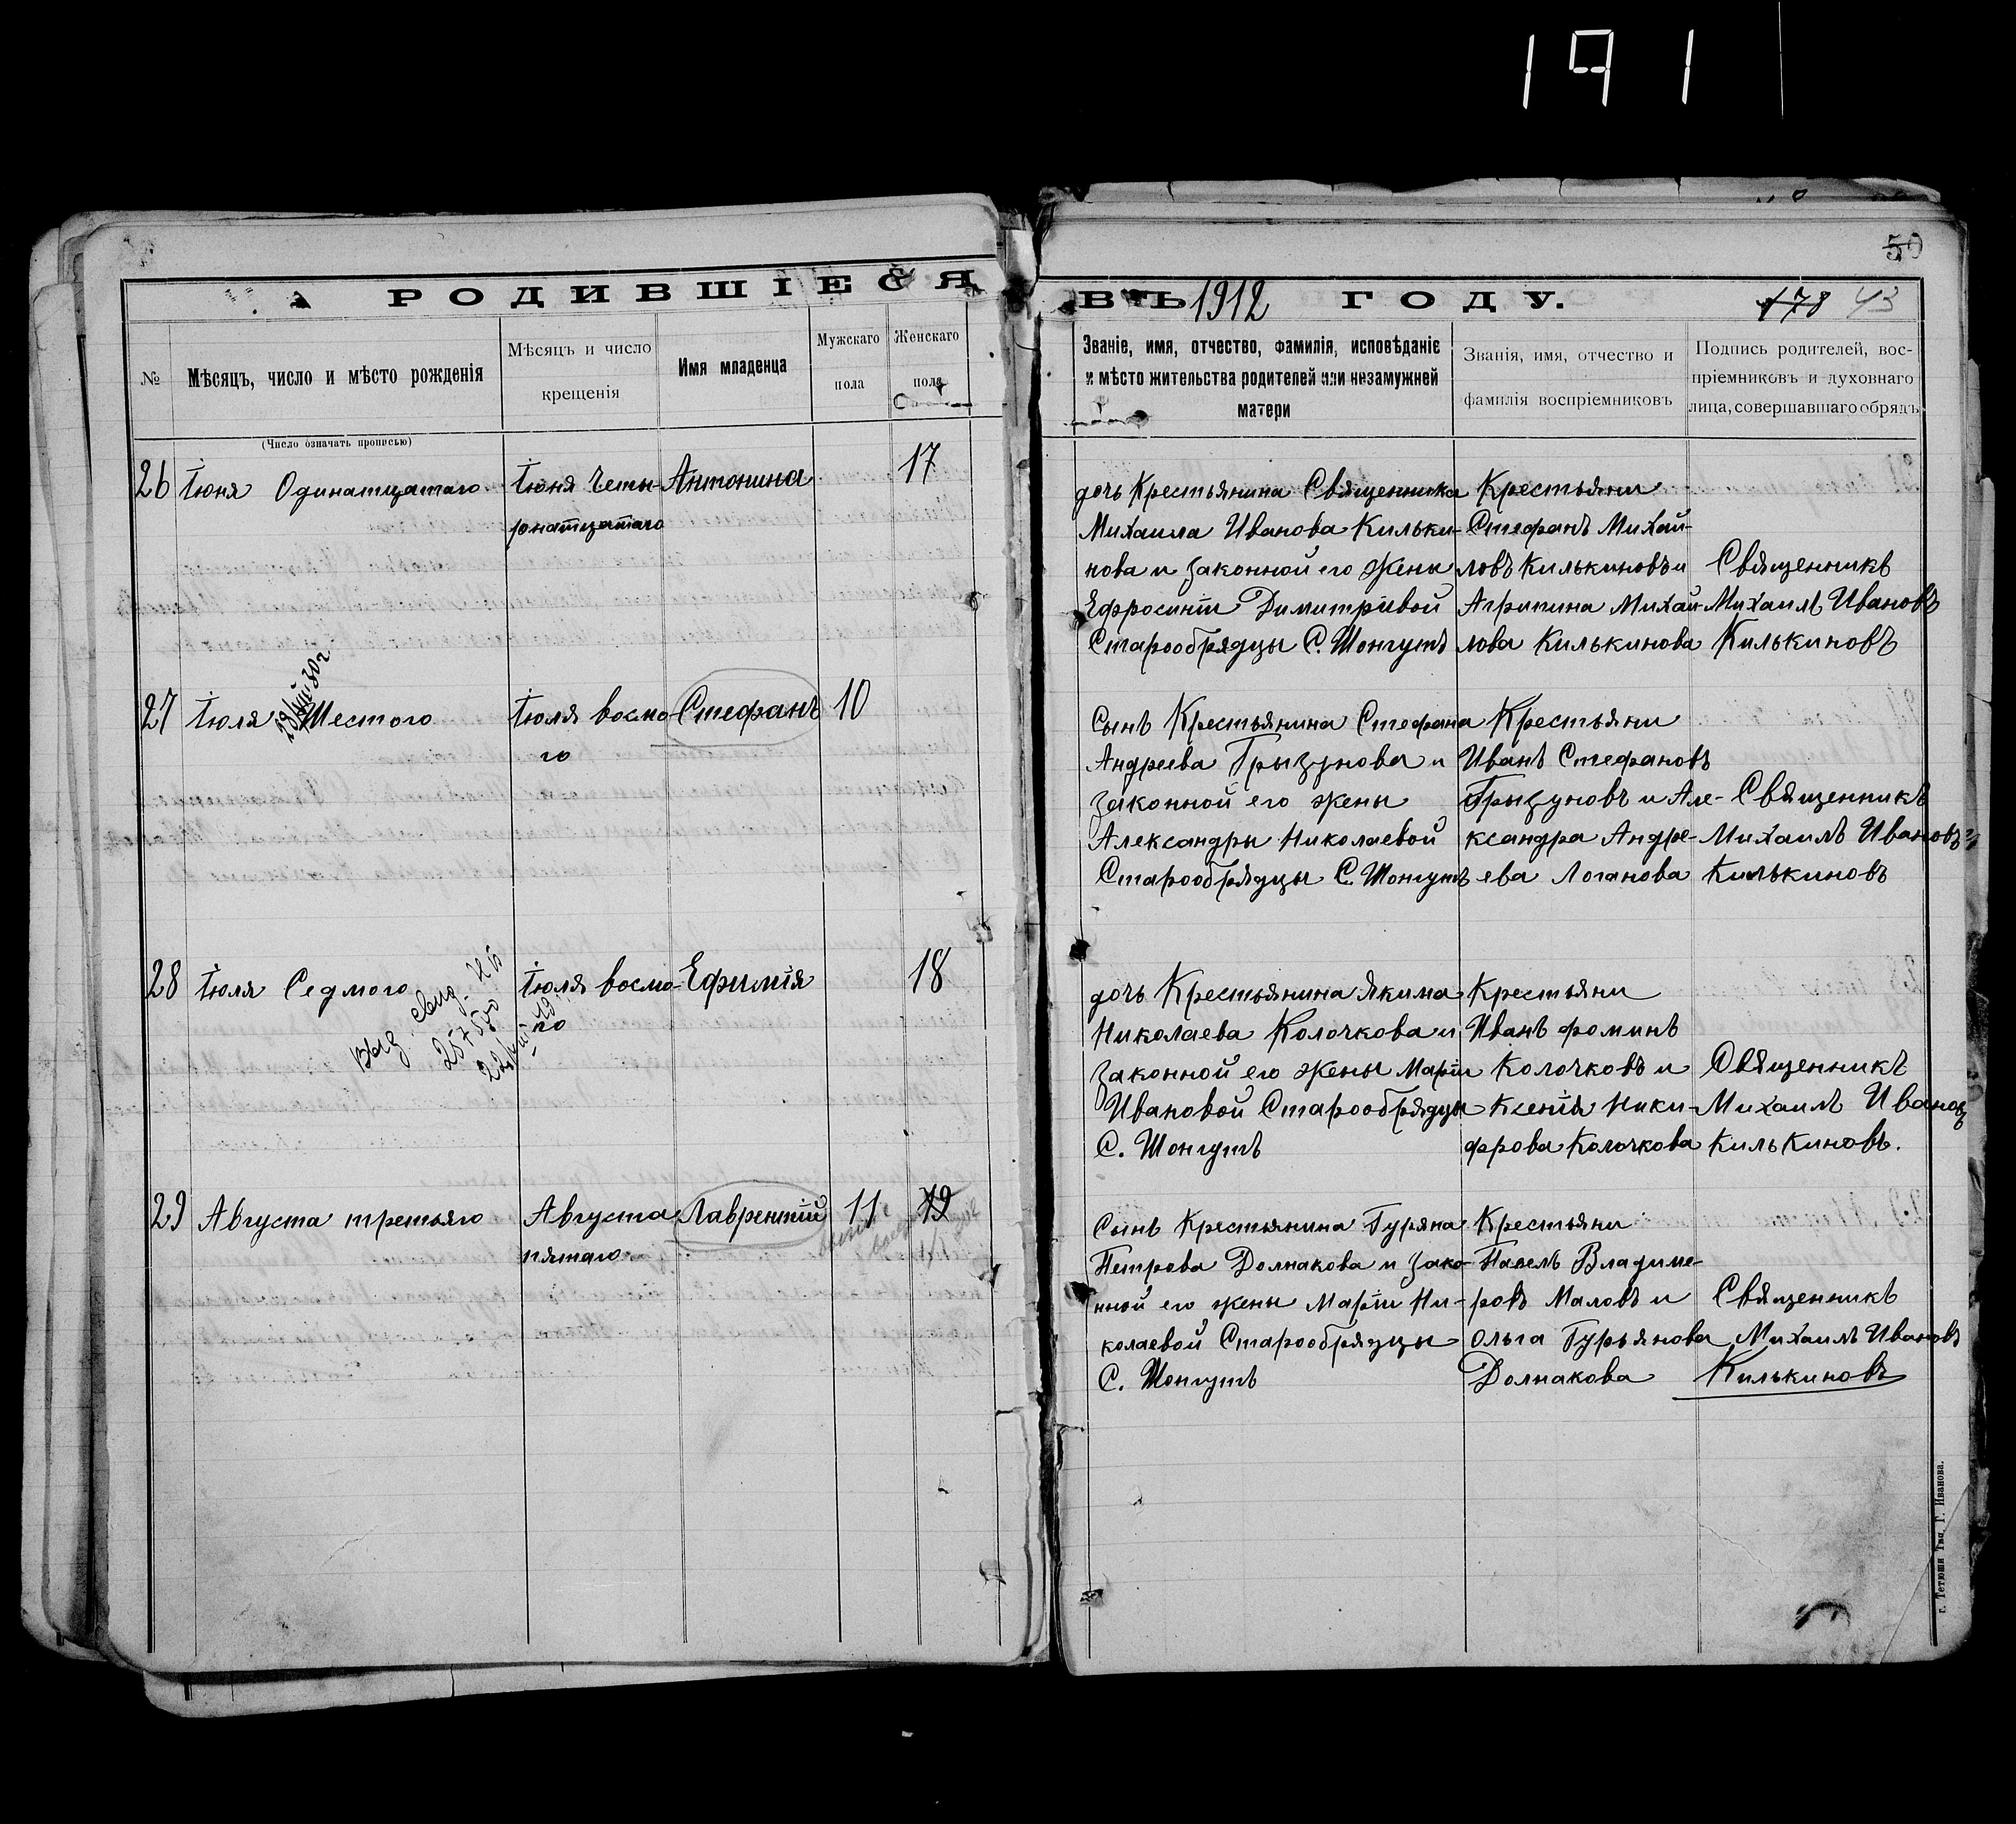 191
50
РОДИВШІЕСЯ ВЪ 1912 ГОДУ.
178 43
№
Мѣсяцъ, число и мѣсто рожденія
(Число означать прописью)
Мѣсяцъ и число
крещенія
Имя младенца
Мужскаго
пола
Женскаго
пола
Званіе, имя, отчество, фамилія, исповѣданіе
и мѣсто жительства родителей или незамужней
матери
Званія, имя, отчество и
фамилія воспріемниковъ
Подпись родителей, вос-
пріемниковъ и духовнаго
лица, совершавшаго обрядъ
26 Іюня Одинатцатаго
Іюня Четы-
рнатцатаго
Антонина
17
дочь Крестьянина Священника
Михаила Иванова Кильки-
нова и законной его жены
Ефросиніи Димитріевой
Старообрядцы С. Шонгутъ
Крестьяни
Стефанъ Михай-
ловъ Килькиновъ и
Агрипина Михай-
лова Килькинова
Священникъ
Михаилъ Ивановъ
Килькиновъ
27 Іюля Шестого
Іюля восмо-
го
Стефанъ
10
Сынъ Крестьянина Стефана
Андреева Грызунова и
законной его жены
Александры Николаевой
Старообрядцы С. Шонгутъ
Крестьяни
Иванъ Стефановъ
Грызуновъ и Але-
ксандра Андре-
ева Логанова
Священникъ
Михаилъ Ивановъ
Килькиновъ
28 Іюля Седмого
Выд. свид.
Іюля восмо-
го
Ефимія
18
дочь Крестьянина Якима
Николаева Колочкова и
законной его жены Маріи
Ивановой Старообрядцы
С. Шонгутъ
Крестьяни
Иванъ фоминъ
Колочковъ и
Ксенія Ники-
фрова Колочкова
Священникъ
Михаилъ Ивановъ
Килькиновъ.
29 Августа третьяго
Августа
пятаго
Лаврентій
11
19
Сынъ Крестьянина Гуряна
Петрова Долнакова и зако-
нной его жены Маріи Ни-
колаевой Старообрядцы
С. Шонгутъ
Крестьяни
Павелъ Владиме-
ровъ Маловъ и
Ольга Гурьянова
Долнакова
Священникъ
Михаилъ Ивановъ
Килькиновъ
г. Тетюши Тип. Г. Иванова.